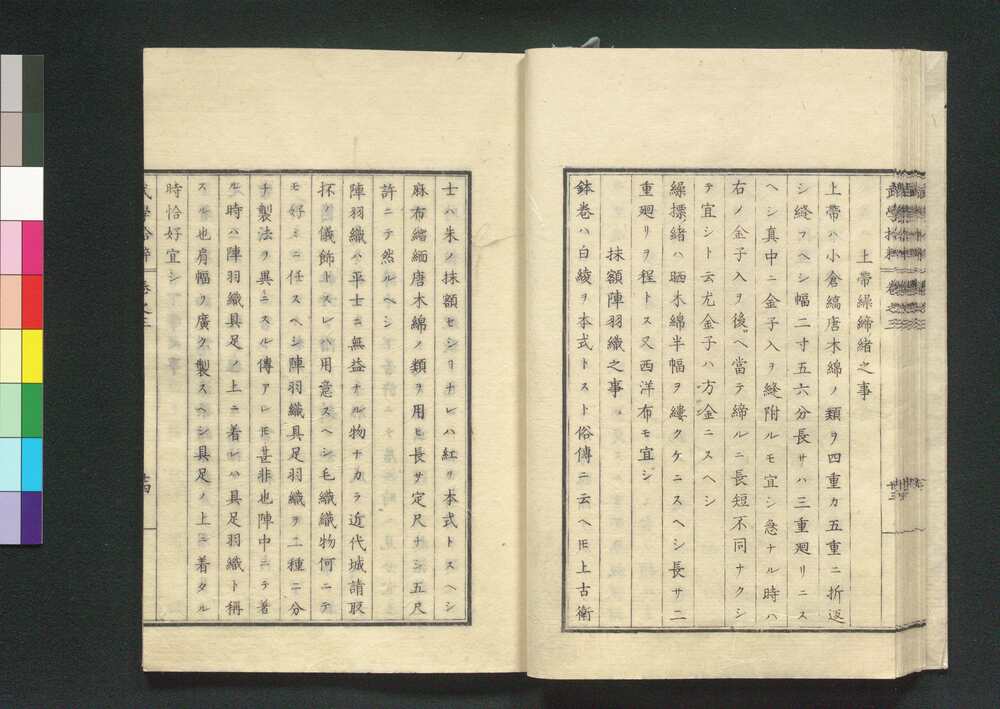 上帶繰締緒之事
上帶ハ小倉縞唐木綿ノ類ヲ四重カ五重ニ折返
シ縫フヘシ幅二寸五六分長サハ三重廻リニス
ヘシ真中ニ金子入ヲ縫附ルモ宜シ急ナル時ハ
右ノ金子入ヲ後ヘ當テ締ルニ長短不同ナクシ
テ宜シト云尤金子ハ方金ニスヘシ
繰摽緒ハ晒木綿半幅ヲ縷クケニスヘシ長サ二
重廻リヲ程トス又西洋布モ宜シ
抹額陣羽織之事
鉢卷ハ白綾ヲ本式トスト俗傳ニ云ヘ𪜈上古衛
士ハ朱ノ抹額セシリナレハ紅ヲ本式トスヘシ
麻布縮緬唐木綿ノ類ヲ用ヒ長サ定尺ナシ五尺
許ニテ然ルヘシ
陣羽織ハ平士ニ無益ナル物ナカラ近代城請取
抔ノ儀飾トスレハ用意スヘシ毛織織物何ニテ
モ好ミニ任スヘシ陣羽織具足羽織ヲ二種ニ分
チ製法ヲ異ニスル傳アレ𪜈甚非也陣中ニテ着
ル時ハ陣羽織具足ノ上ニ着レハ具足羽織ト稱
ス也肩幅ヲ廣ク製スヘシ具足ノ上ニ着タル
時恰好宜シ